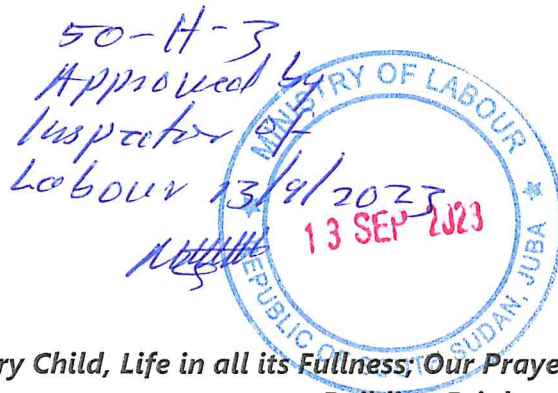 50-H-3
Approved by
Inspector of
Labour 13/9/2023
MINISTRY OF LABOUR
13 SEP 2023
REPUBLIC OF SOUTH SUDAN, JUBA
ry Child, Life in all its Fullness; Our Praye